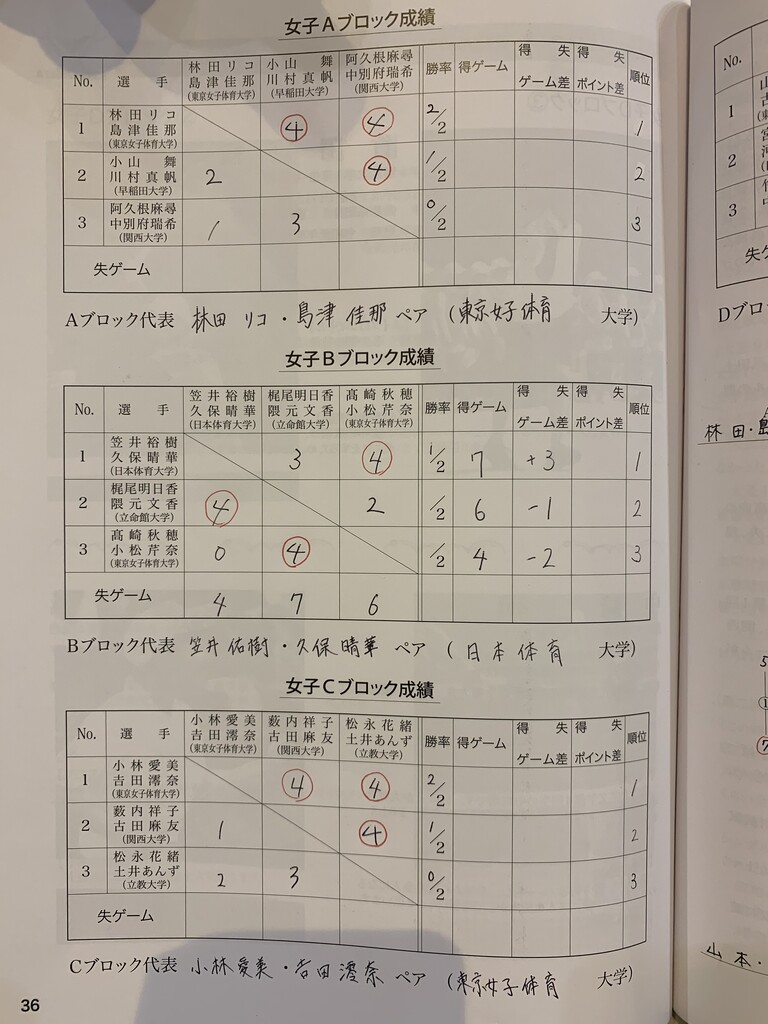 女子Aブロック成績
No. 選手 林田リコ 島津佳那 (東京女子体育大学) 小山舞 川村真帆 (早稲田大学) 阿久根麻尋 中別府瑞希 (関西大学) 勝率 得ゲーム 得失ゲーム差 得失ポイント差 順位
1 林田リコ 島津佳那 (東京女子体育大学) ④ ④ 2/2 1
2 小山舞 川村真帆 (早稲田大学) 2 ④ 1/2 2
3 阿久根麻尋 中別府瑞希 (関西大学) 1 3 0/2 3
失ゲーム
Aブロック代表 林田 リコ・島津 佳那 ペア (東京女子体育 大学)
女子Bブロック成績
No. 選手 笠井裕樹 久保晴華 (日本体育大学) 梶尾明日香 隈元文香 (立命館大学) 髙崎秋穂 小松芹奈 (東京女子体育大学) 勝率 得ゲーム 得失ゲーム差 得失ポイント差 順位
1 笠井裕樹 久保晴華 (日本体育大学) 3 ④ 1/2 7 +3 1
2 梶尾明日香 隈元文香 (立命館大学) ④ 2 1/2 6 -1 2
3 髙崎秋穂 小松芹奈 (東京女子体育大学) 0 ④ 1/2 4 -2 3
失ゲーム 4 7 6
Bブロック代表 笠井 佑樹・久保 晴華 ペア (日本体育 大学)
女子Cブロック成績
No. 選手 小林愛美 吉田澪奈 (東京女子体育大学) 薮内祥子 古田麻友 (関西大学) 松永花緒 土井あんず (立教大学) 勝率 得ゲーム 得失ゲーム差 得失ポイント差 順位
1 小林愛美 吉田澪奈 (東京女子体育大学) ④ ④ 2/2 1
2 薮内祥子 古田麻友 (関西大学) 1 ④ 1/2 2
3 松永花緒 土井あんず (立教大学) 2 3 0/2 3
失ゲーム
Cブロック代表 小林 愛美・吉田 澪奈 ペア (東京女子体育 大学)
36
No.
1
2
3
Dブロ
林田・
山本・